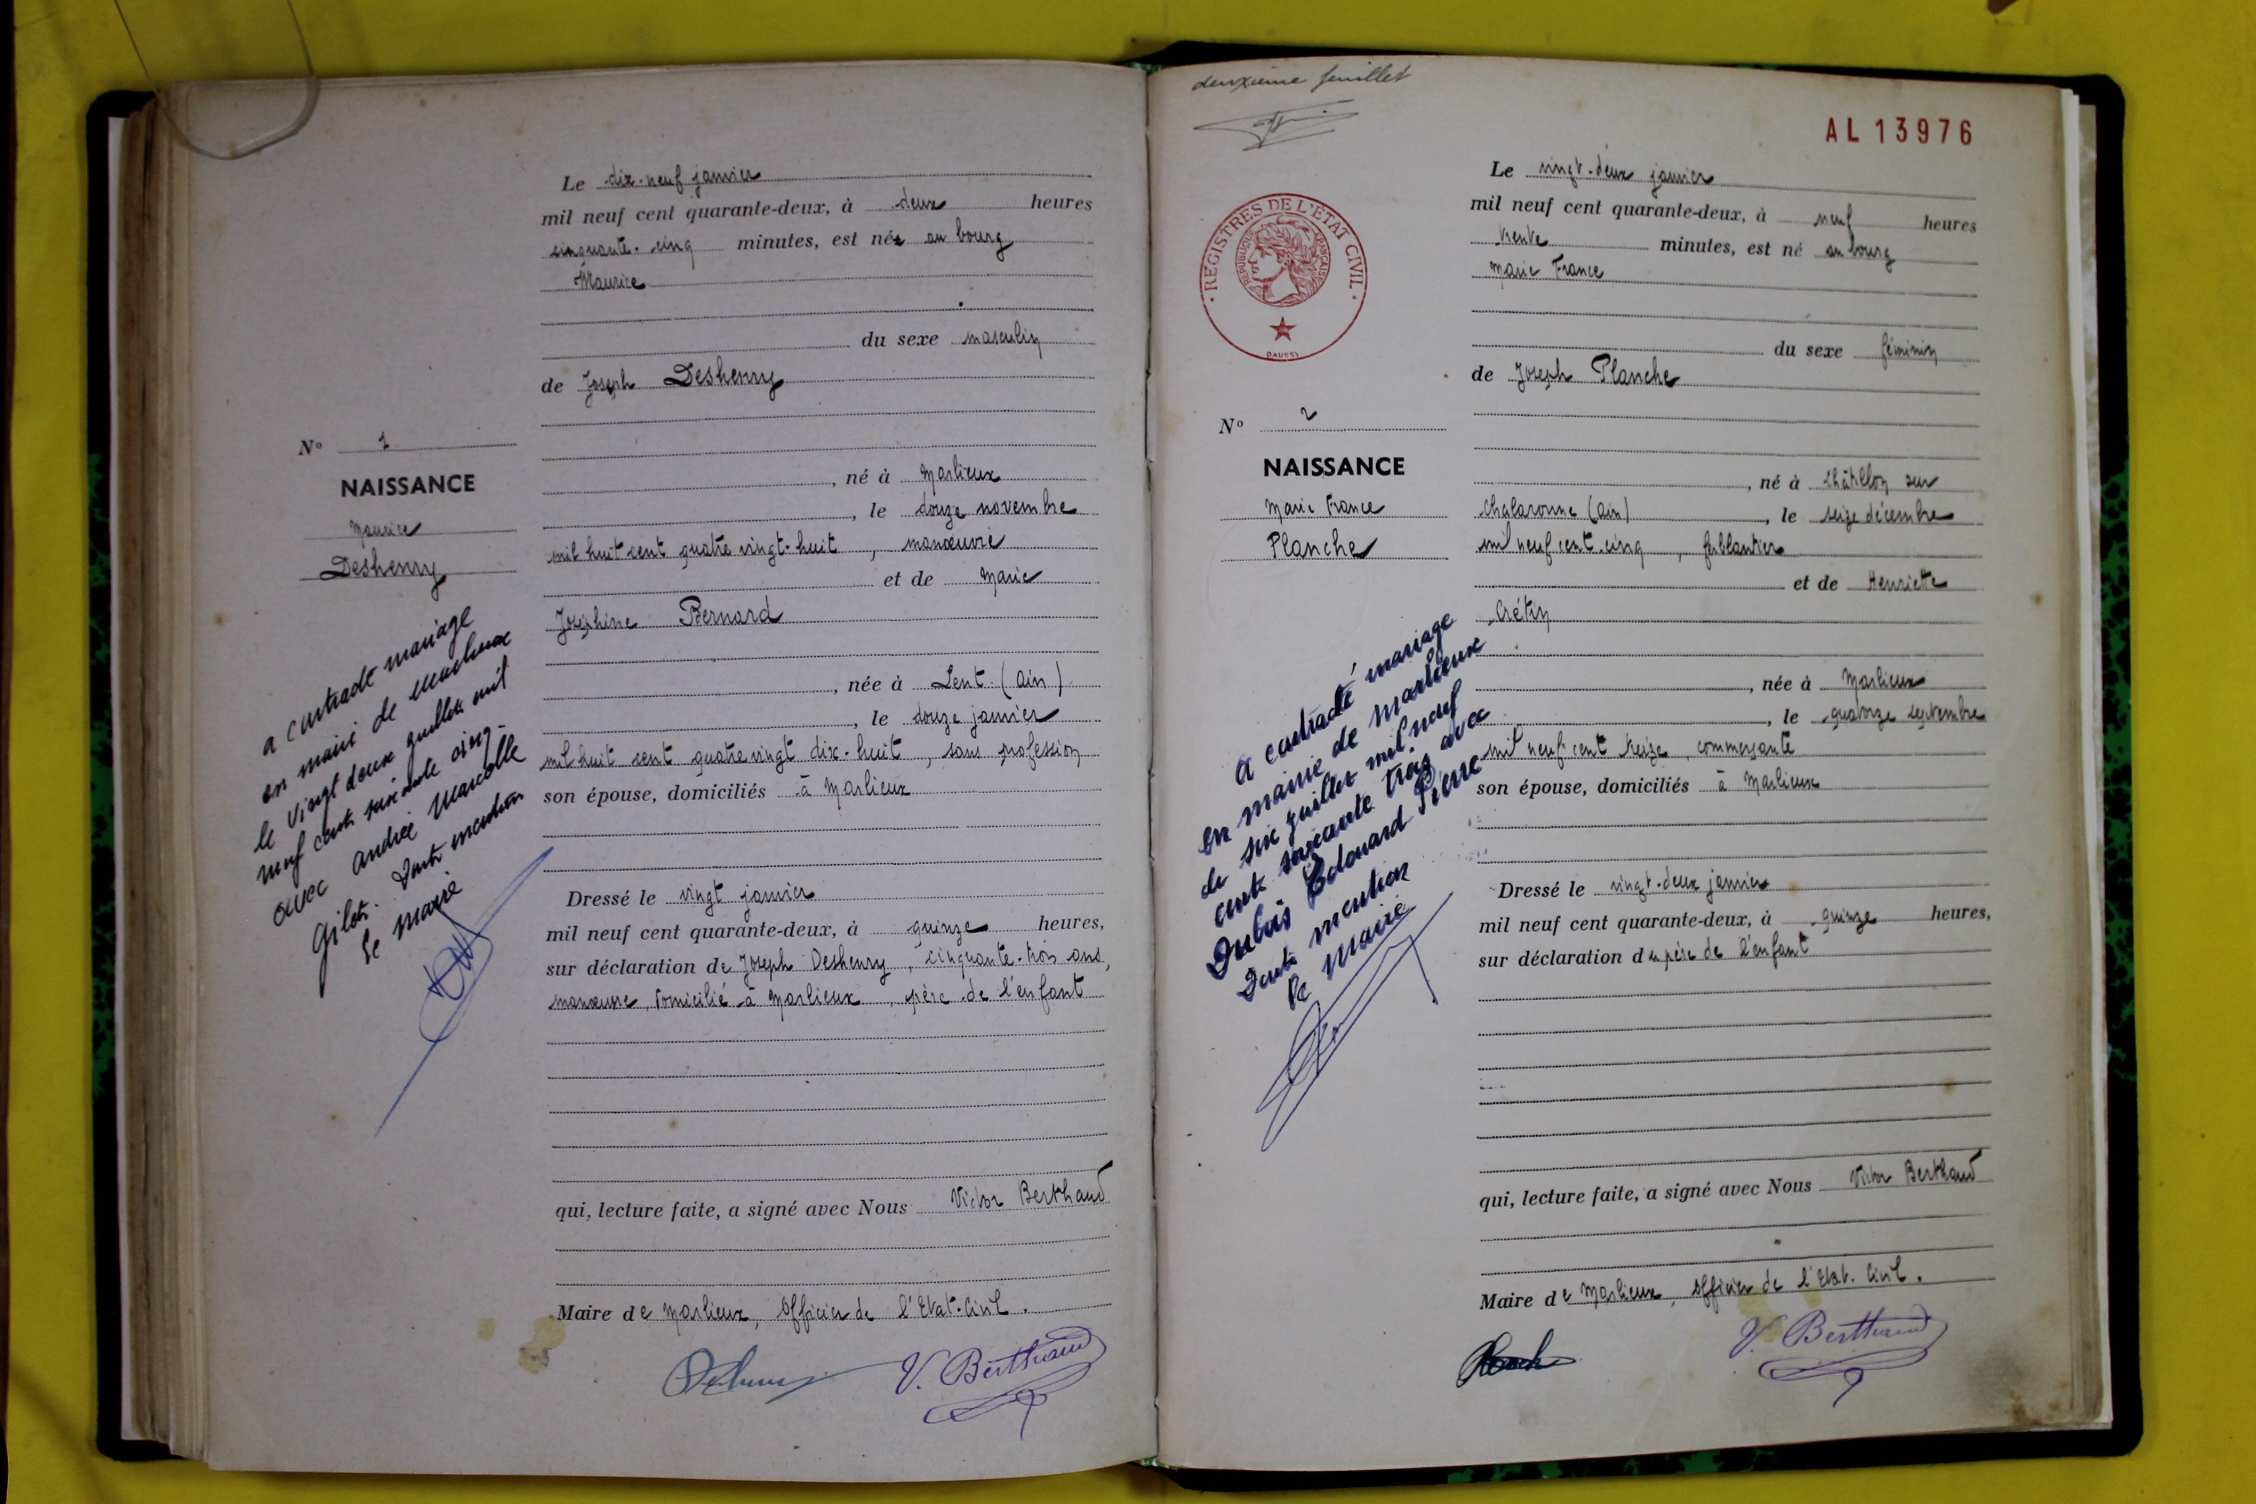 Le dix-neuf janvier
mil neuf cent quarante-deux, à deux heures
cinquante-cinq minutes, est né au bourg
Maurice
du sexe masculin
de Joseph Deshenry
, né à Marlieux
, le douze novembre
mil huit cent quatre vingt-huit, manœuvre
et de Marie
Joséphine Bernard
, née à Lent (Ain)
, le douze janvier
mil huit cent quatre vingt dix-huit, sans profession
son épouse, domiciliés à Marlieux
Dressé le vingt janvier
mil neuf cent quarante-deux, à quinze heures,
sur déclaration de Joseph Deshenry, cinquante-trois ans,
manœuvre, domicilié à Marlieux, père de l'enfant
qui, lecture faite, a signé avec Nous Victor Berthaud
Maire de Marlieux, Officier de l'Etat-Civil.
V. Berthaud
No 1
NAISSANCE
Maurice
Deshenry
a contracté mariage
en mairie de Marlieux
le vingt deux juillet mil
neuf cent soixante cinq
avec Andrée Marcelle
Gilet. Dont mention
Le Maire
deuxième feuillet
AL 13976
REGISTRES DE L'ETAT CIVIL
REPUBLIQUE FRANÇAISE
DAUSSY
Le vingt-deux janvier
mil neuf cent quarante-deux, à neuf heures
trente minutes, est né au bourg
Marie France
du sexe féminin
de Joseph Planche
, né à Châtillon sur
Chalaronne (Ain), le seize décembre
mil neuf cent cinq, ferblantier
et de Henriette
Crétin
, née à Marlieux
, le quatorze septembre
mil neuf cent treize, commerçante
son épouse, domiciliés à Marlieux
Dressé le vingt-deux janvier
mil neuf cent quarante-deux, à quinze heures,
sur déclaration du père de l'enfant
qui, lecture faite, a signé avec Nous Victor Berthaud
Maire de Marlieux, Officier de l'Etat-Civil.
V. Berthaud
No 2
NAISSANCE
Marie France
Planche
a contracté mariage
en mairie de Marlieux
de six juillet mil neuf
cent soixante trois avec
Dubois Edouard Pierre
Dont mention
Le Maire